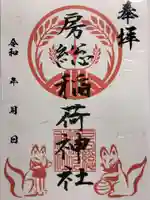 奉拝
房総稲荷神社
令和 年 月 日